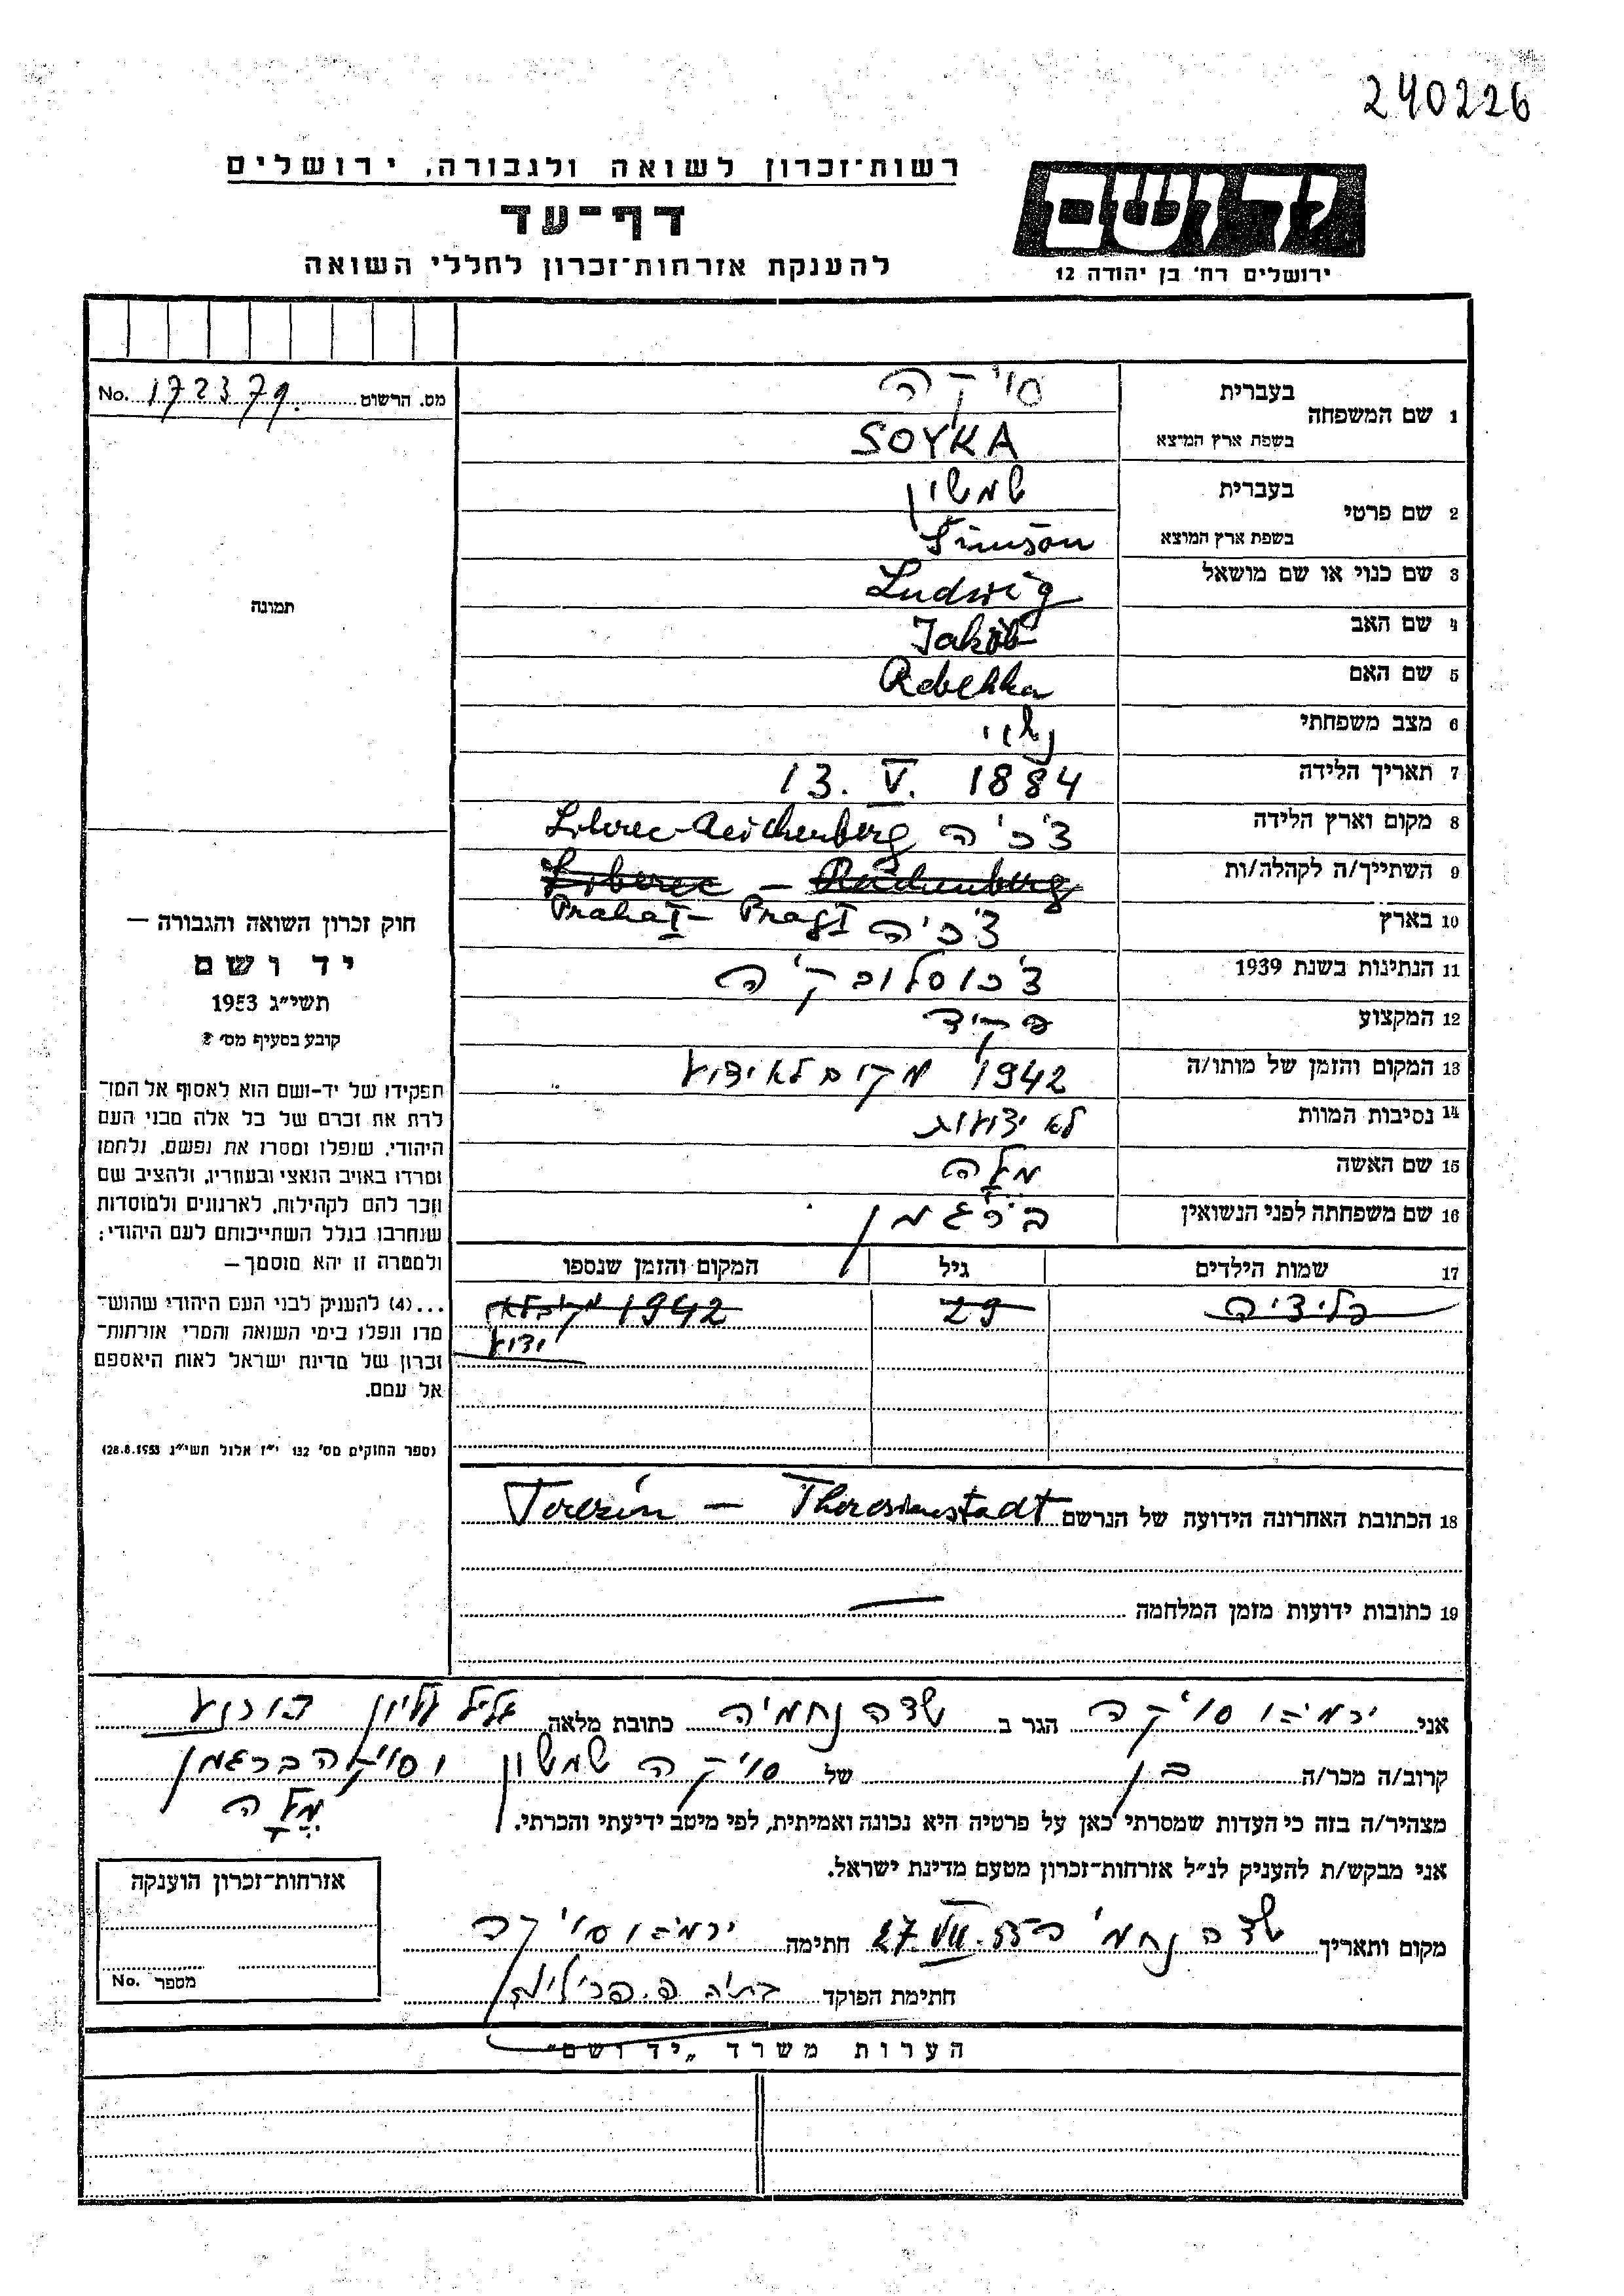 240226
יד ושם
ירושלים רח' בן יהודה 12
רשות-זכרון לשואה ולגבורה, ירושלים
דף-עד
להענקת אזרחות-זכרון לחללי השואה
מס. הרשום 172379. No.
תמונה
1 שם המשפחה
בעברית סויקה
בשפת ארץ המוצא SOYKA
2 שם פרטי
בעברית שמשון
בשפת ארץ המוצא Simson
3 שם כנוי או שם מושאל Ludwig
4 שם האב Jakob
5 שם האם Rebekka
6 מצב משפחתי נשוי
7 תאריך הלידה 13. V. 1884
8 מקום וארץ הלידה צ'כיה Liberec-Reichenberg
9 השתייך/ה לקהלה/ות Liberec – Reichenberg
10 בארץ צ'כיה Praha I – Prag I
11 הנתינות בשנת 1939 צ'כוסלובקיה
12 המקצוע פקיד
13 המקום והזמן של מותו/ה 1942 מקום לא ידוע
14 נסיבות המוות לא ידועות
15 שם האשה מלה
16 שם משפחתה לפני הנשואין ברגמן
17 שמות הילדים גיל המקום והזמן שנספו
29 1942 מקום לא
ידוע
18 הכתובת האחרונה הידועה של הנרשם Terezín – Theresienstadt
19 כתובות ידועות מזמן המלחמה —
חוק זכרון השואה והגבורה —
יד ושם
תשי"ג 1953
קובע בסעיף מס' 2
תפקידו של יד-ושם הוא לאסוף אל המו-
לדת את זכרם של כל אלה מבני העם
היהודי, שנפלו ומסרו את נפשם, נלחמו
ומרדו באויב הנאצי ובעוזריו, ולהציב שם
וזכר להם לקהילות, לארגונים ולמוסדות
שנחרבו בגלל השתייכותם לעם היהודי;
ולמטרה זו יהא מוסמך –
...(4) להעניק לבני העם היהודי שהוש-
מדו ונפלו בימי השואה והמרי אזרחות-
זכרון של מדינת ישראל לאות היאספם
אל עמם.
(ספר החוקים מס' 132 י"ז אלול תשי"ג 28.8.1953)
אני ירמיהו סויקה הגר ב שדה נחמיה כתובת מלאה גליל עליון
קרוב/ה מכר/ה בן של סויקה שמשון וסויקה ברגמן
מלה
מצהיר/ה בזה כי העדות שמסרתי כאן על פרטיה היא נכונה ואמיתית, לפי מיטב ידיעתי והכרתי.
אני מבקש/ת להעניק לנ"ל אזרחות-זכרון מטעם מדינת ישראל.
מקום ותאריך שדה נחמי' 27. חתימה ירמיהו סויקה
חתימת הפוקד
אזרחות-זכרון הוענקה
מספר No.
הערות משרד „יד ושם"